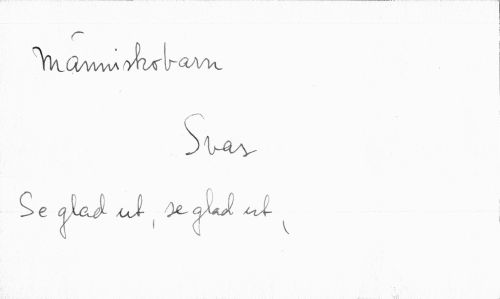 Människobarn
Svar
Se glad ut, se glad ut,